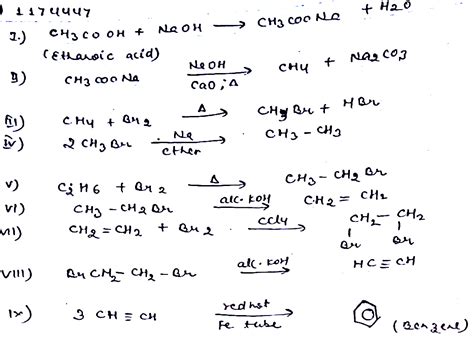 1174447
I.) CH3COOH + NaOH → CH3COONa + H2O
(Ethanoic acid)
II) CH3COONa NaOH CaO, Δ → CH4 + Na2CO3
III) CH4 + Br2 Δ → CH3Br + HBr
IV) 2CH3Br Na ether → CH3-CH3
V) C2H6 + Br2 Δ → CH3-CH2Br
VI) CH3-CH2Br alc. KOH → CH2=CH2
VII) CH2=CH2 + Br2 CCl4 → CH2-CH2
Br Br
VIII) BrCH2-CH2-Br alc. KOH → HC≡CH
IX) 3 CH≡CH red hot Fe tube → (Benzene)